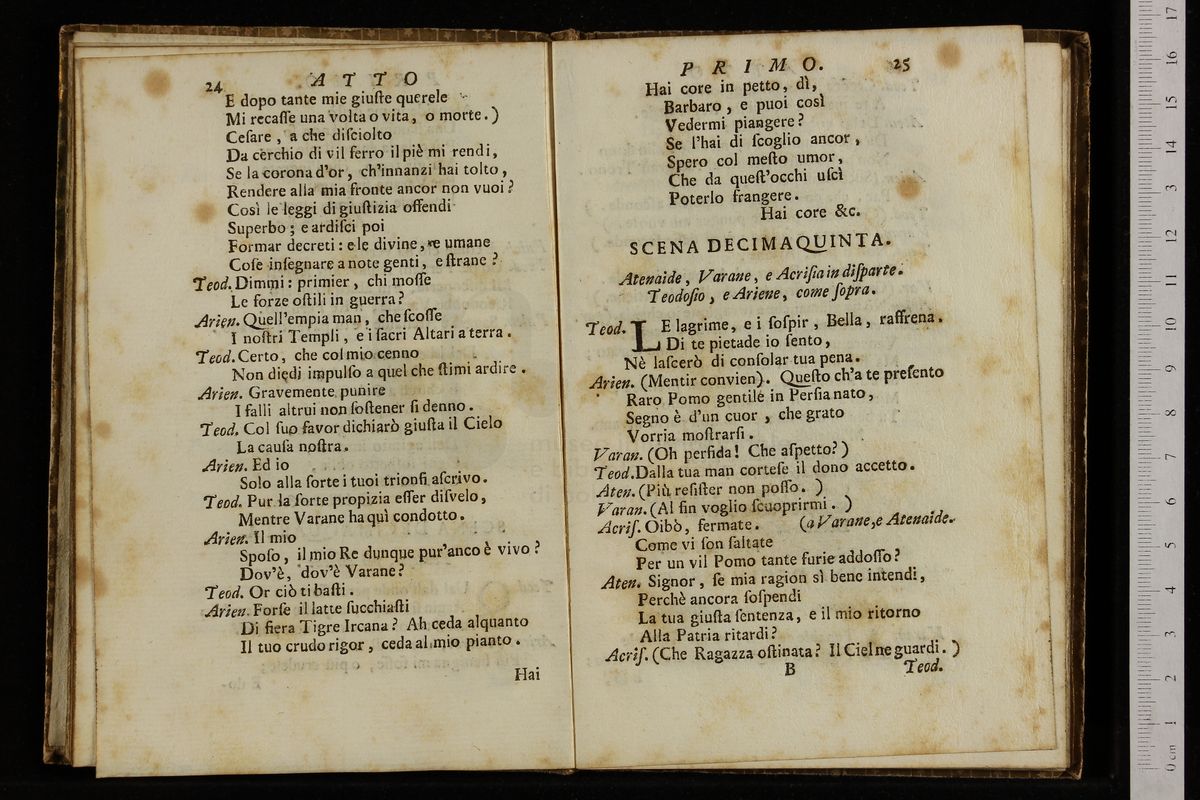 24 A T T O
E dopo tante mie giuſte querele
Mi recaſſe una volta o vita, o morte.)
Ceſare, a che diſciolto
Da cerchio di vil ferro il piè mi rendi,
Se la corona d'or, ch'innanzi hai tolto,
Rendere alla mia fronte ancor non vuoi?
Così le leggi di giuſtizia offendi
Superbo; e ardiſci poi
Formar decreti: e le divine, e umane
Coſe inſegnare a note genti, e ſtrane?
Teod. Dimmi: primier, chi moſſe
Le forze oſtili in guerra?
Arien. Quell'empia man, che ſcoſſe
I noſtri Templi, e i ſacri Altari a terra.
Teod. Certo, che col mio cenno
Non diedi impulſo a quel che ſtimi ardire.
Arien. Gravemente punire
I falli altrui non ſoſtener ſi denno.
Teod. Col ſuo favor dichiarò giuſta il Cielo
La cauſa noſtra.
Arien. Ed io
Solo alla ſorte i tuoi trionfi aſcrivo.
Teod. Pur la ſorte propizia eſſer diſvelo,
Mentre Varane ha quì condotto.
Arien. Il mio
Spoſo, il mio Re dunque pur'anco è vivo?
Dov'è, dov'è Varane?
Teod. Or ciò ti baſti.
Arien. Forſe il latte ſucchiaſti
Di fiera Tigre Ircana? Ah ceda alquanto
Il tuo crudo rigor, ceda al mio pianto.
Hai
P R I M O. 25
Hai core in petto, dì,
Barbaro, e puoi così
Vedermi piangere?
Se l'hai di ſcoglio ancor,
Spero col meſto umor,
Che da queſt'occhi uſcì
Poterlo frangere.
Hai core &c.
SCENA DECIMAQUINTA.
Atenaide, Varane, e Acriſia in diſparte.
Teodoſio, e Ariene, come ſopra.
Teod. LE lagrime, e i ſoſpir, Bella, raffrena.
Di te pietade io ſento,
Nè laſcerò di conſolar tua pena.
Arien. (Mentir convien). Queſto ch'a te preſento
Raro Pomo gentile in Perſia nato,
Segno è d'un cuor, che grato
Vorria moſtrarſi.
Varan. (Oh perfida! Che aſpetto?)
Teod. Dalla tua man corteſe il dono accetto.
Aten. (Più reſiſter non poſſo. )
Varan. (Al fin voglio ſcuoprirmi. )
Acriſ. Oibò, fermate. (a Varane, e Atenaide.
Come vi ſon ſaltate
Per un vil Pomo tante furie addoſſo?
Aten. Signor, ſe mia ragion sì bene intendi,
Perchè ancora ſoſpendi
La tua giuſta ſentenza, e il mio ritorno
Alla Patria ritardi?
Acriſ. (Che Ragazza oſtinata? Il Ciel ne guardi. )
B Teod.